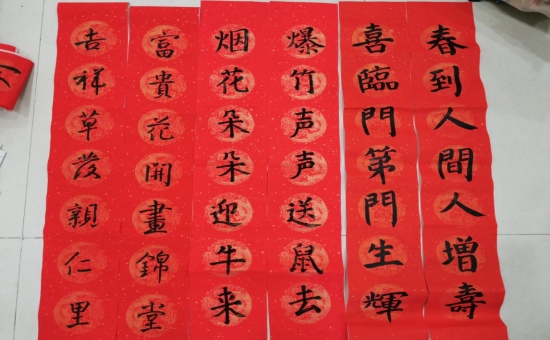 春到人間人增壽
喜臨門第門生輝
爆竹声声送鼠去
烟花朵朵迎牛来
富貴花開畫錦堂
吉祥草發親仁里